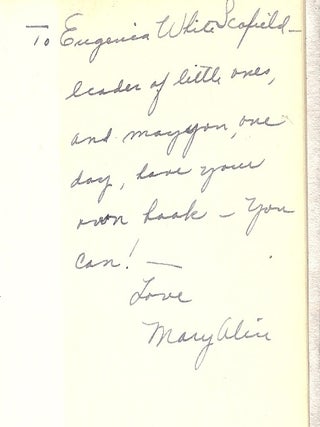 To Eugenia White Scofield —
leader of little ones,
and may you, one
day, have your
own book — You
can! —
Love
Mary Alice